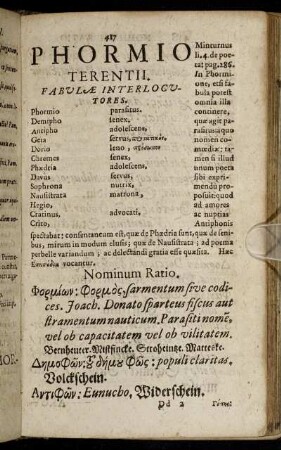 417
PHORMIO
TERENTII.
FABULÆ INTERLOCU-
TORES.
Phormio parasitus.
Demipho senex,
Antipho adolescens,
Geta servus,
Dorio leno,
Chremes senex,
Phædria adolescens,
Davus servus,
Sophrona nutrix,
Nausistrata matrona,
Hegio,
Cratinus, advocati,
Crito,
Minturnus
li. 4. de poe-
ta: pag. 286.
In Phormi-
one, etsi fa-
bula potest
omnia illa
continere,
quæ agit pa-
rasitus: quo
nomen co-
mœdiæ: ta-
men si illud
unum poeta
sibi expri-
mendū pro-
posuisset,
quod ad
amores
ac nuptias
Antiphonis
spectabat: consentaneum est, quæ de Phædria sunt, quæ de seni-
bus, mirum in modum elusis; quæ de Nausistrata; ad poema
perbelle variandum, ac delectandi gratia esse quæsita. Hæc
vocantur.
Nominum Ratio.
Φορμίων: Φορμὸς, sarmentum sive codi-
ces. Joach. Donato sparteus fiscus aut
stramentum nauticum. Parasiti nomē,
vel ob capacitatem vel ob vilitatem.
Bernheuter. Mistfincke. Stroheintze. Matteske.
Δημοφῶν: δήμου Φῶς: populi claritas.
Volckschein.
ΑντιΦῶν: Eunucho, Widerschein.
Dd 2